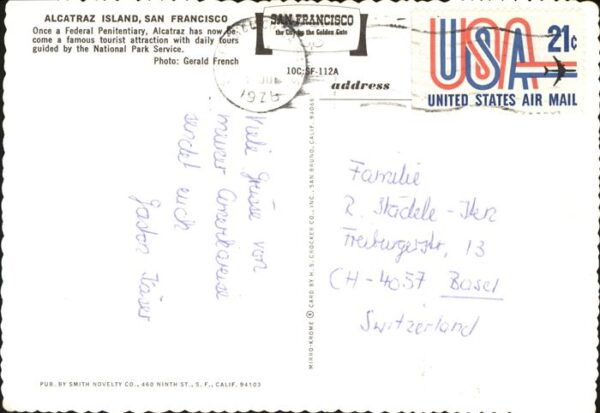 ALCATRAZ ISLAND, SAN FRANCISCO
Once a Federal Penitentiary, Alcatraz has now be-
come a famous tourist attraction with daily tours
guided by the National Park Service.
Photo: Gerald French
SAN FRANCISCO
the City by the Golden Gate
10C:SF-112A
address
USA 21c
UNITED STATES AIR MAIL
Viele Grüsse von
meiner Amerikareise
sendet euch
Gaston
MIRRO-KROME ® CARD BY H. S. CROCKER CO., INC., SAN BRUNO, CALIF. 94066
Familie
R. Städele-
Freiburgerstr. 13
CH-4057 Basel
Switzerland
PUB. BY SMITH NOVELTY CO., 460 NINTH ST., S. F., CALIF. 94103